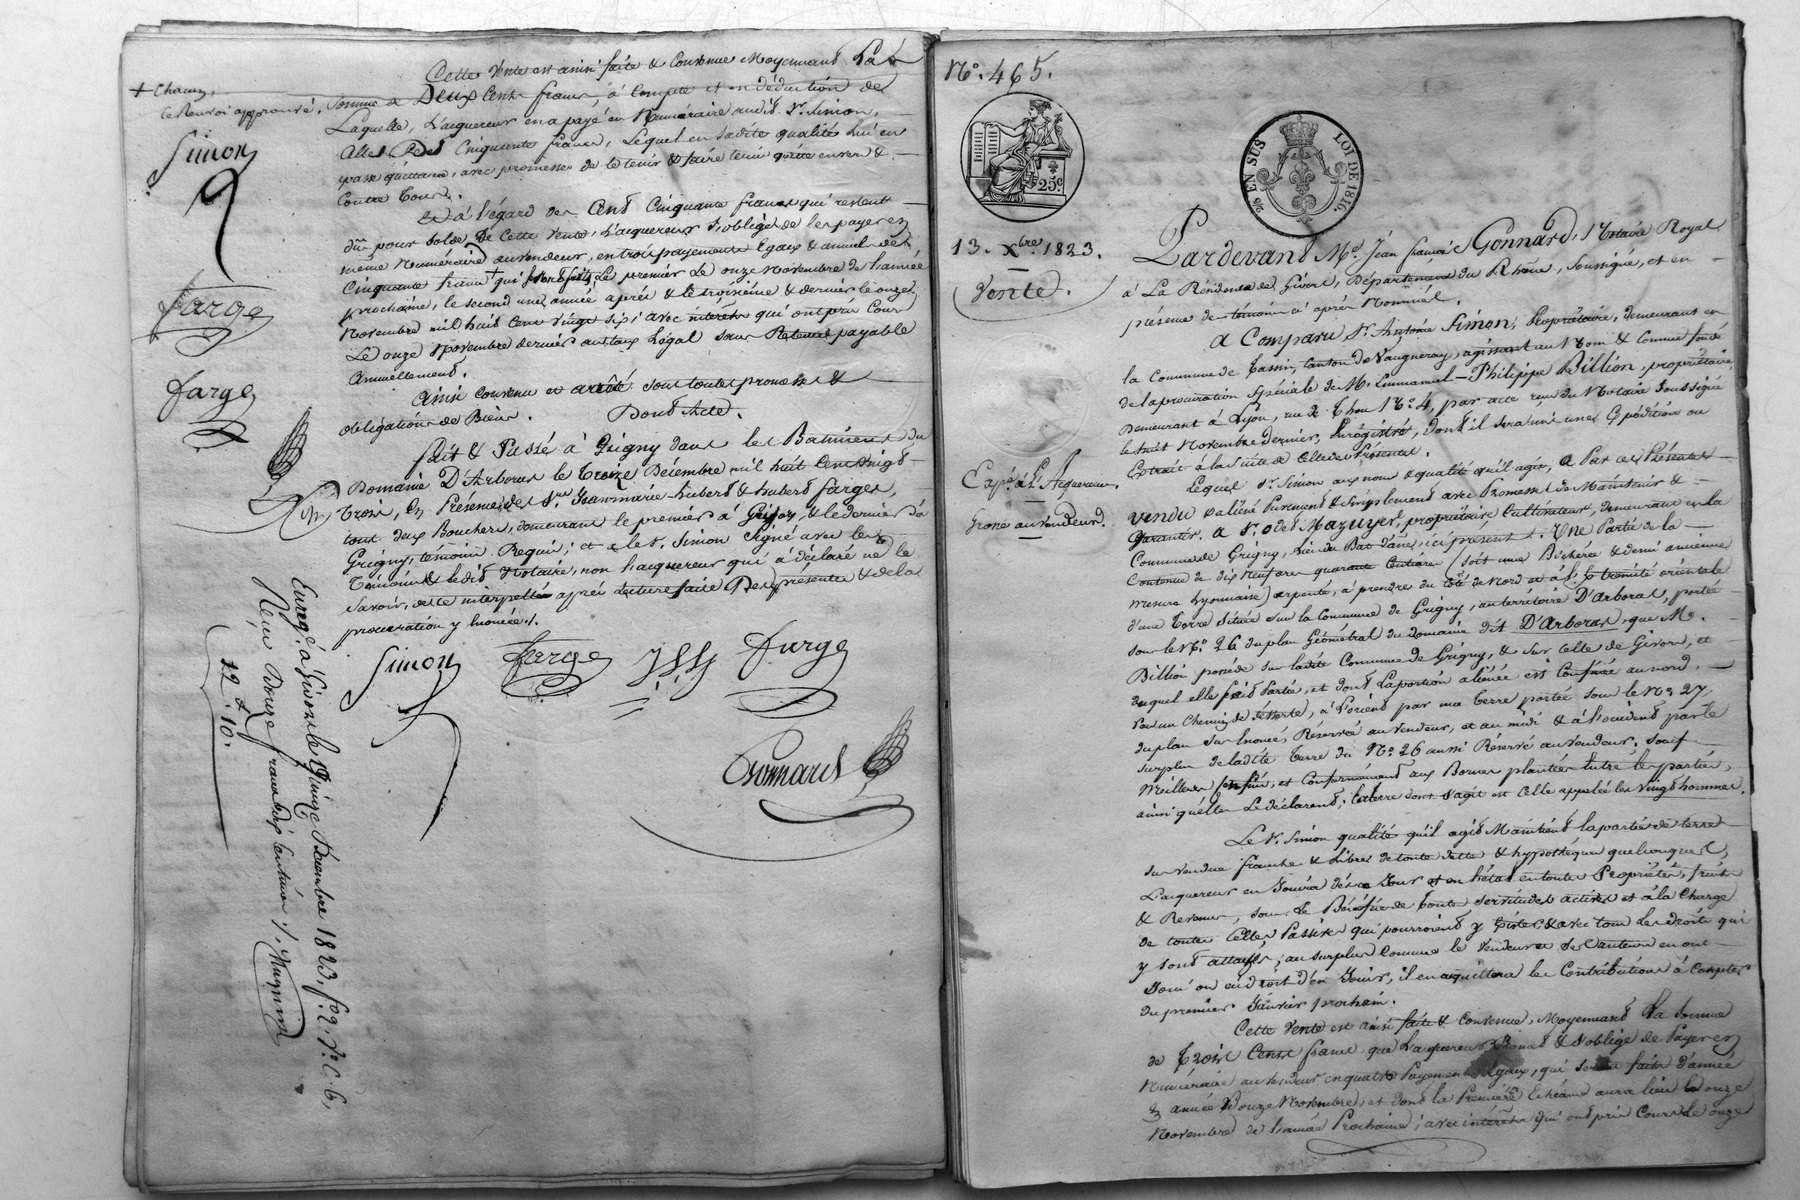 + chacun,
ce Renvoi approuvé.
Simon
farge
farge
Cette Vente est ainsi faite & Convenue Moyennant La
Somme de Deux Cents francs, à Compte et en déduction de
Laquelle, L'acquereur en a payé en Numéraire audit Sr. Simon,
Cinquante francs, Lequel en sadite qualité lui en
passe quittance, avec promesse de le tenir & faire tenir quitte envers &
Contre tous.
Et à l'égard des Cent Cinquante francs qui restent
dus pour Solde de Cette Vente, L'acquereur s'oblige de les payer en
même Numéraire au vendeur, en trois payements Egaux & annuels de
Cinquante francs + qui Le premier Le onze Novembre de l'année
prochaine, le second une année après & le troisième & dernier le onze
Novembre mil huit Cent vingt six; avec intérêts qui ont pris Cours
Le onze Novembre dernier au taux Légal sans Retenue payable
Annuellement.
Ainsi convenu et arrêté sous toutes promesses &
obligations de Biens. Dont Acte.
fait & Passé à Grigny dans les Batiments du
Domaine D'Arboras le Treize Décembre mil huit Cent vingt
Trois, En Présence des Srs. hubert & hubert farge,
tous deux Bouchers, demeurant le premier à Givors, & le dernier à
Grigny, témoins Requis; et le Sr. Simon Signé avec les
Temoins & ledit Notaire, non l'acquereur qui a déclaré ne le
Savoir, de ce interpellé après lecture faite Des présentes & de la
procuration y énoncée ./.
Simon farge farge
Gonnard
Enreg.é à Givors le Quinze Décembre 1823, fo. 2. Vo. C. 6,
Reçu Douze francs dix centimes ./.
12 f 10.
No. 465.
25 c
EN SUS
LOI DE 1816.
13. Xbre. 1823.
Vente.
Exp.on à l'Acquereur.
Grosse au vendeur.
Pardevant Me. Jean français Gonnard, Notaire Royal
à La Résidence de Givors, Département du Rhône, Soussigné, et en
présence de témoins ci après Nommés.
A Comparu Sr. Antoine Simon, Propriétaire, demeurant en
la Commune de Tassin, Canton de Vaugneray, agissant au Nom & Comme fondé
de la procuration Spéciale de M. Emmanuel-Philippe Billion, propriétaire,
Demeurant à Lyon, rue De Thou No. 4, par acte reçu du Notaire Soussigné
le huit Novembre dernier, Enregistré, dont il sera une Expédition ou
Extrait à la Suite de Celle des Présentes.
Lequel Sr. Simon aux noms & qualité qu'il agit, a Par ces Présentes
vendu & aliéné Purement & Simplement avec Promesse de Maintenir &
Garantir, a Sr. Odet Mazuyer, propriétaire Cultivateur, demeurant en la
Commune de Grigny, lieu du Bat d'ane, ici présent. Une Partie de la
Contenue de dix neuf ares quarante Centiares (soit une Bicherée & demi ancienne
mesure Lyonnaise) arpentés, à prendre du Côté de Nord et à L'Extremité orientale
d'une Terre située sur la Commune de Grigny, au territoire D'Arboras, portée
sous le No. 26 du plan Géométral du Domaine dit D'Arboras, que M.
Billion possède sur ladite Commune de Grigny, & sur Celle de Givors, et
duquel elle fait Partie, et dont La portion aliénée est Confinée au nord
Par un Chemin de déserte, à l'orient par une terre portée sous le No. 27
du plan Sus énoncé, Réservée au vendeur, et au midi & à l'occident par le
surplus de ladite terre du No. 26 aussi Réservé au vendeur; Sauf
meilleurs Confins, et Conformément aux Bornes plantées entre les parties,
ainsi qu'elles Le déclarent; la terre dont s'agit est Celle appelée les Vingt hommes.
Le Sr. Simon qualité qu'il agit Maintient la partie de terre
sus vendue franche & Libre de toute dette & hypothèque quelconques,
L'acquereur en Jouira dès ce Jour et en l'état en toute Propriété, fruits
& Revenus, sous le Bénéfice de toute servitudes actives et à la Charge
de toutes Celles Passives qui pourroient y Exister, & avec tous les droits qui
y sont attachés; au surplus Comme le Vendeur et ses auteurs en ont
Joui ou eu droit d'en Jouir, il en acquittera les Contributions à Compter
du premier Janvier prochain.
Cette Vente est ainsi faite & Convenue, Moyennant la Somme
de Trois Cents francs que L'acquereur Promet & s'oblige de Payer en
Numéraire au vendeur en quatre Payements Egaux, qui seront faits d'année
en année Le onze Novembre, et dont la Première Echéance aura lieu le onze
Novembre de l'année Prochaine; avec intérêts qui ont pris Cours Le onze